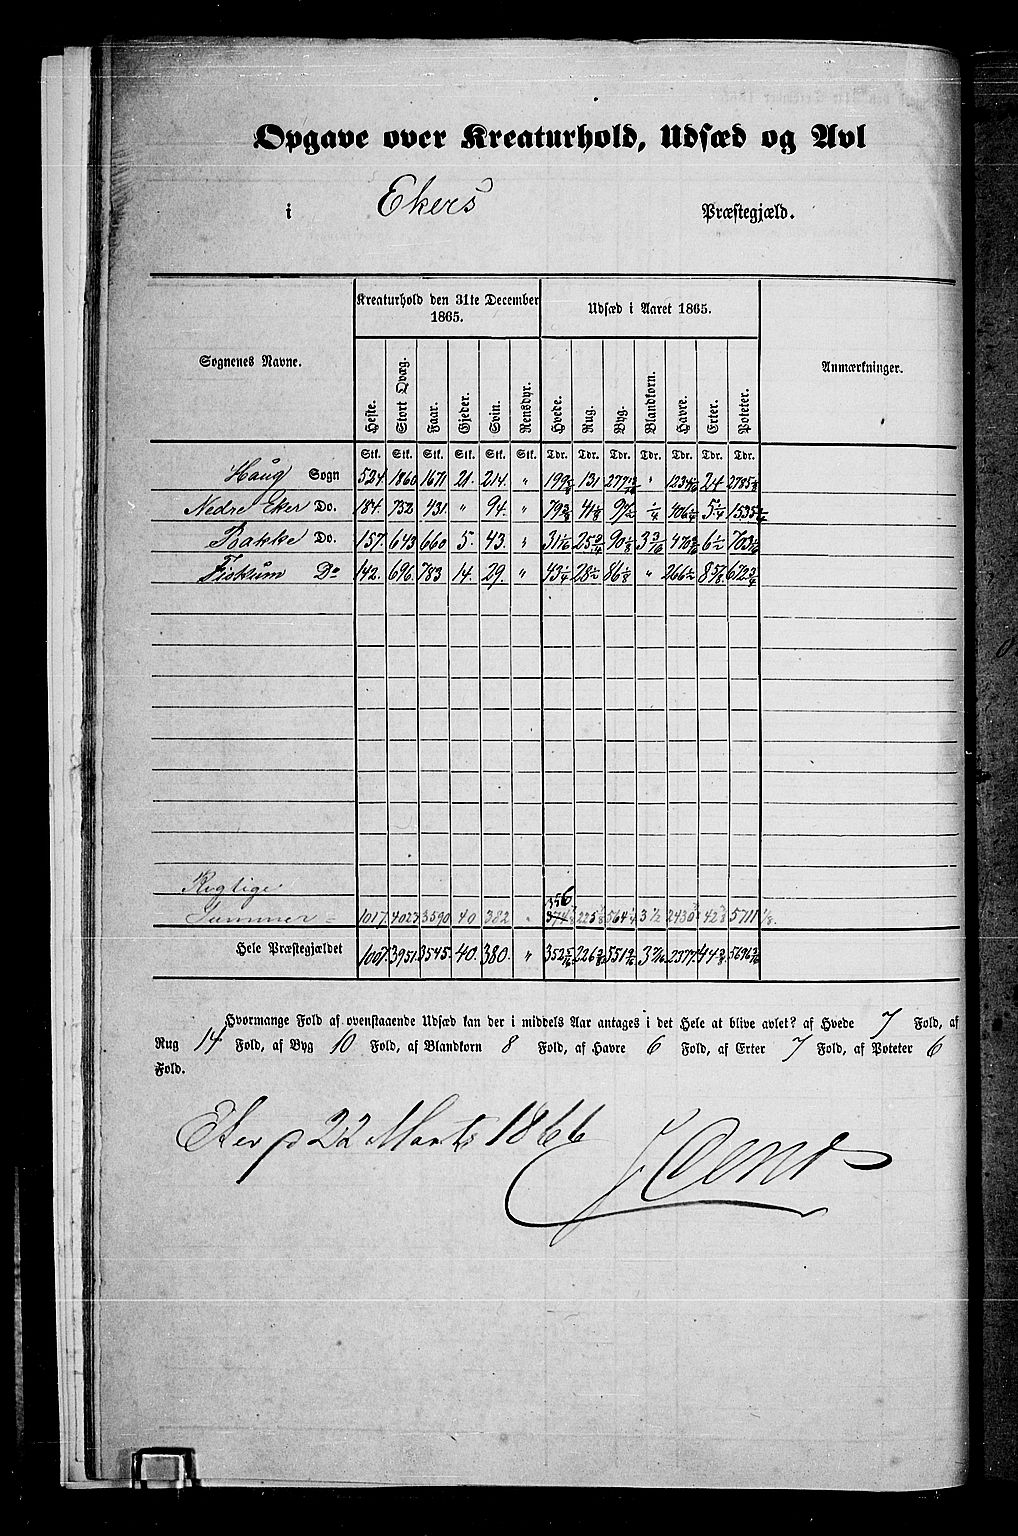 Opgave over Kreaturhold, Udsæd og Avl
i Ekers Præstegjæld.
Sognenes Navne.
Kreaturhold den 31te December 1865.
Udsæd i Aaret 1865.
Anmærkninger.
Heste. Stort Qvæg. Faar. Gjeder. Svin. Rensdyr. Hvede. Rug. Byg. Blandkorn. Havre. Erter. Poteter.
Stk. Stk. Stk. Stk. Stk. Stk. Tdr. Tdr. Tdr. Tdr. Tdr. Tdr. Tdr.
Haug Sogn 524 1860 1671 21. 214. " 131 " 24
Nedre Eker Do. 184. 752 431. " 94. " 1/4 5 1/4
Bakke Do. 157. 643 660 5. 43. " 31 1/16 25 3/4 90 1/8 3 3/16 6 1/2 703 1/16
Fiskum Do 142. 696. 783 14. 29. " 43 1/4 28 1/2 86 1/8 " 266 1/2 8 5/8 672 3/4
Rigtige
Summer = 1017 4027 3590 40 382 " 356 3 1/2 5711 1/8.
Hele Præstegjældet 1007. 3951. 3545. 40. 380. " 3 7/16
Hvormange Fold af ovenstaaende Udsæd kan der i middels Aar antages i det Hele at blive avlet? af Hvede 7 Fold, af
Rug 14 Fold, af Byg 10 Fold, af Blandkorn 8 Fold, af Havre 6 Fold, af Erter 7 Fold, af Poteter 6
Fold.
Eker p 22 Marts 1866